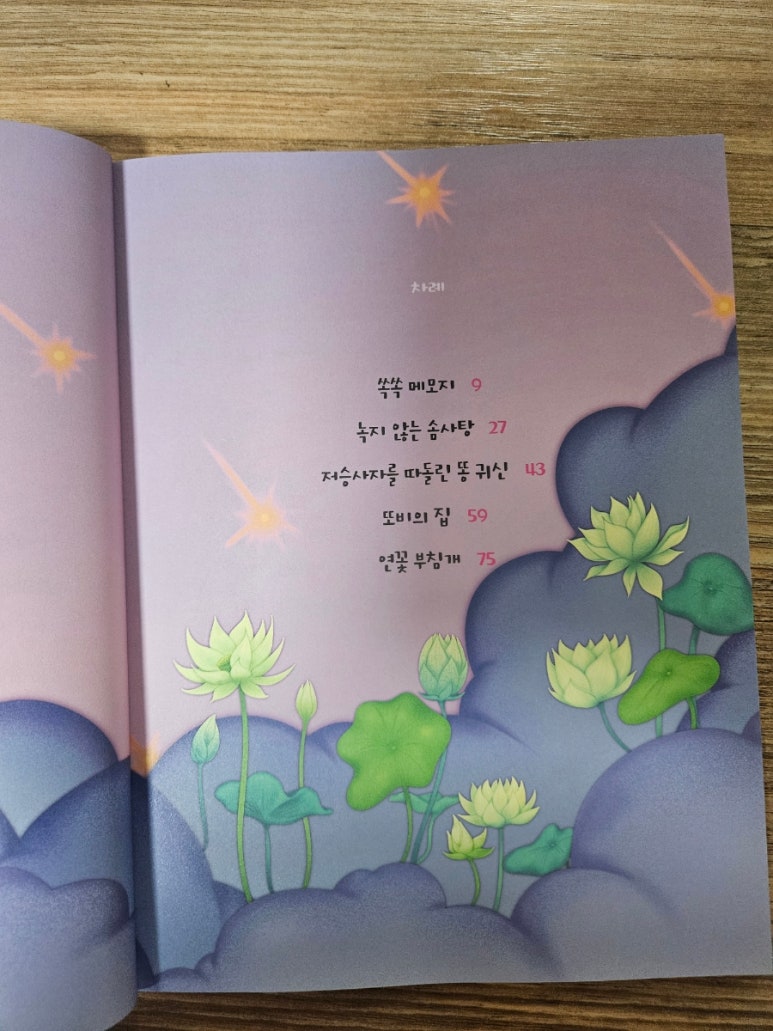 차례
쏙쏙 메모지 9
녹지 않는 솜사탕 27
저승사자를 따돌린 똥 귀신 43
또비의 집 59
연꽃 부침개 75